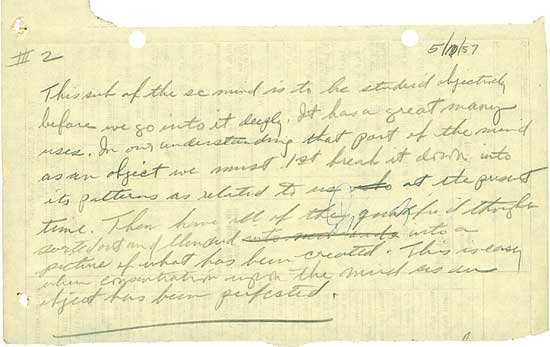 III 2
5/11/57
This sub of the sc mind is to be studied objectively
before we go into it deeply. It has a great many
uses. In our understanding that part of the mind
as an object we must 1st break it down into
its patterns as related to us at the present
time. Then have all of the thoughts
sorted out and blended into a
picture of what has been created. This is easy
when concentration upon the mind as an
object has been perfected.